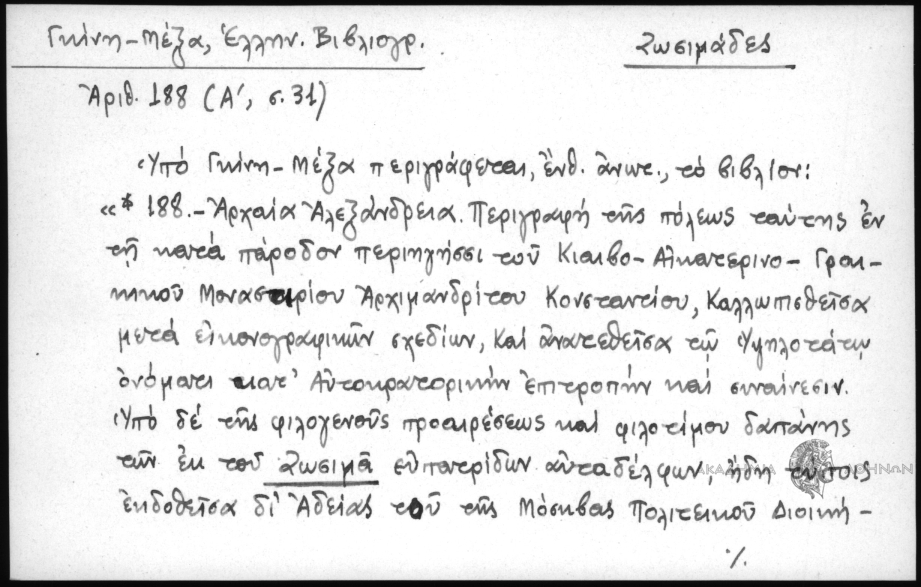 Γκίνη-Μέξα, Ἑλλην. Βιβλιογρ.
Ζωσιμάδες
Ἀριθ. 188 (Α΄, σ. 31)
Ὑπό Γκίνη-Μέξα περιγράφεται, ἔνθ. ἄνωτ., τό βιβλίον:
«* 188.- Ἀρχαία Ἀλεξάνδρεια. Περιγραφή τῆς πόλεως ταύτης ἐν
τῇ κατά πάροδον περιηγήσει τοῦ Κιαιβο-Αἰκατερινο-Γραι-
κικοῦ Μοναστηρίου Ἀρχιμανδρίτου Κονσταντίου, Καλλωπισθεῖσα
μετά εἰκονογραφικῶν σχεδίων, καί ἀνατεθεῖσα τῷ Ὑψηλοτάτῳ
ὀνόματι κατ' Αὐτοκρατορικήν ἐπιτροπήν καί συναίνεσιν.
Ὑπό δέ τῆς φιλογενοῦς προαιρέσεως καί φιλοτίμου δαπάνης
τῶν ἐκ τοῦ Ζωσιμᾶ εὐπατρίδων αὐταδέλφων, ἤδη τύποις
ἐκδοθεῖσα δι' Ἀδείας τοῦ τῆς Μόσκβας Πολιτεικοῦ Διοική-
·/.
ΑΚΑΔΗΜΙΑ ΑΘΗΝΩΝ